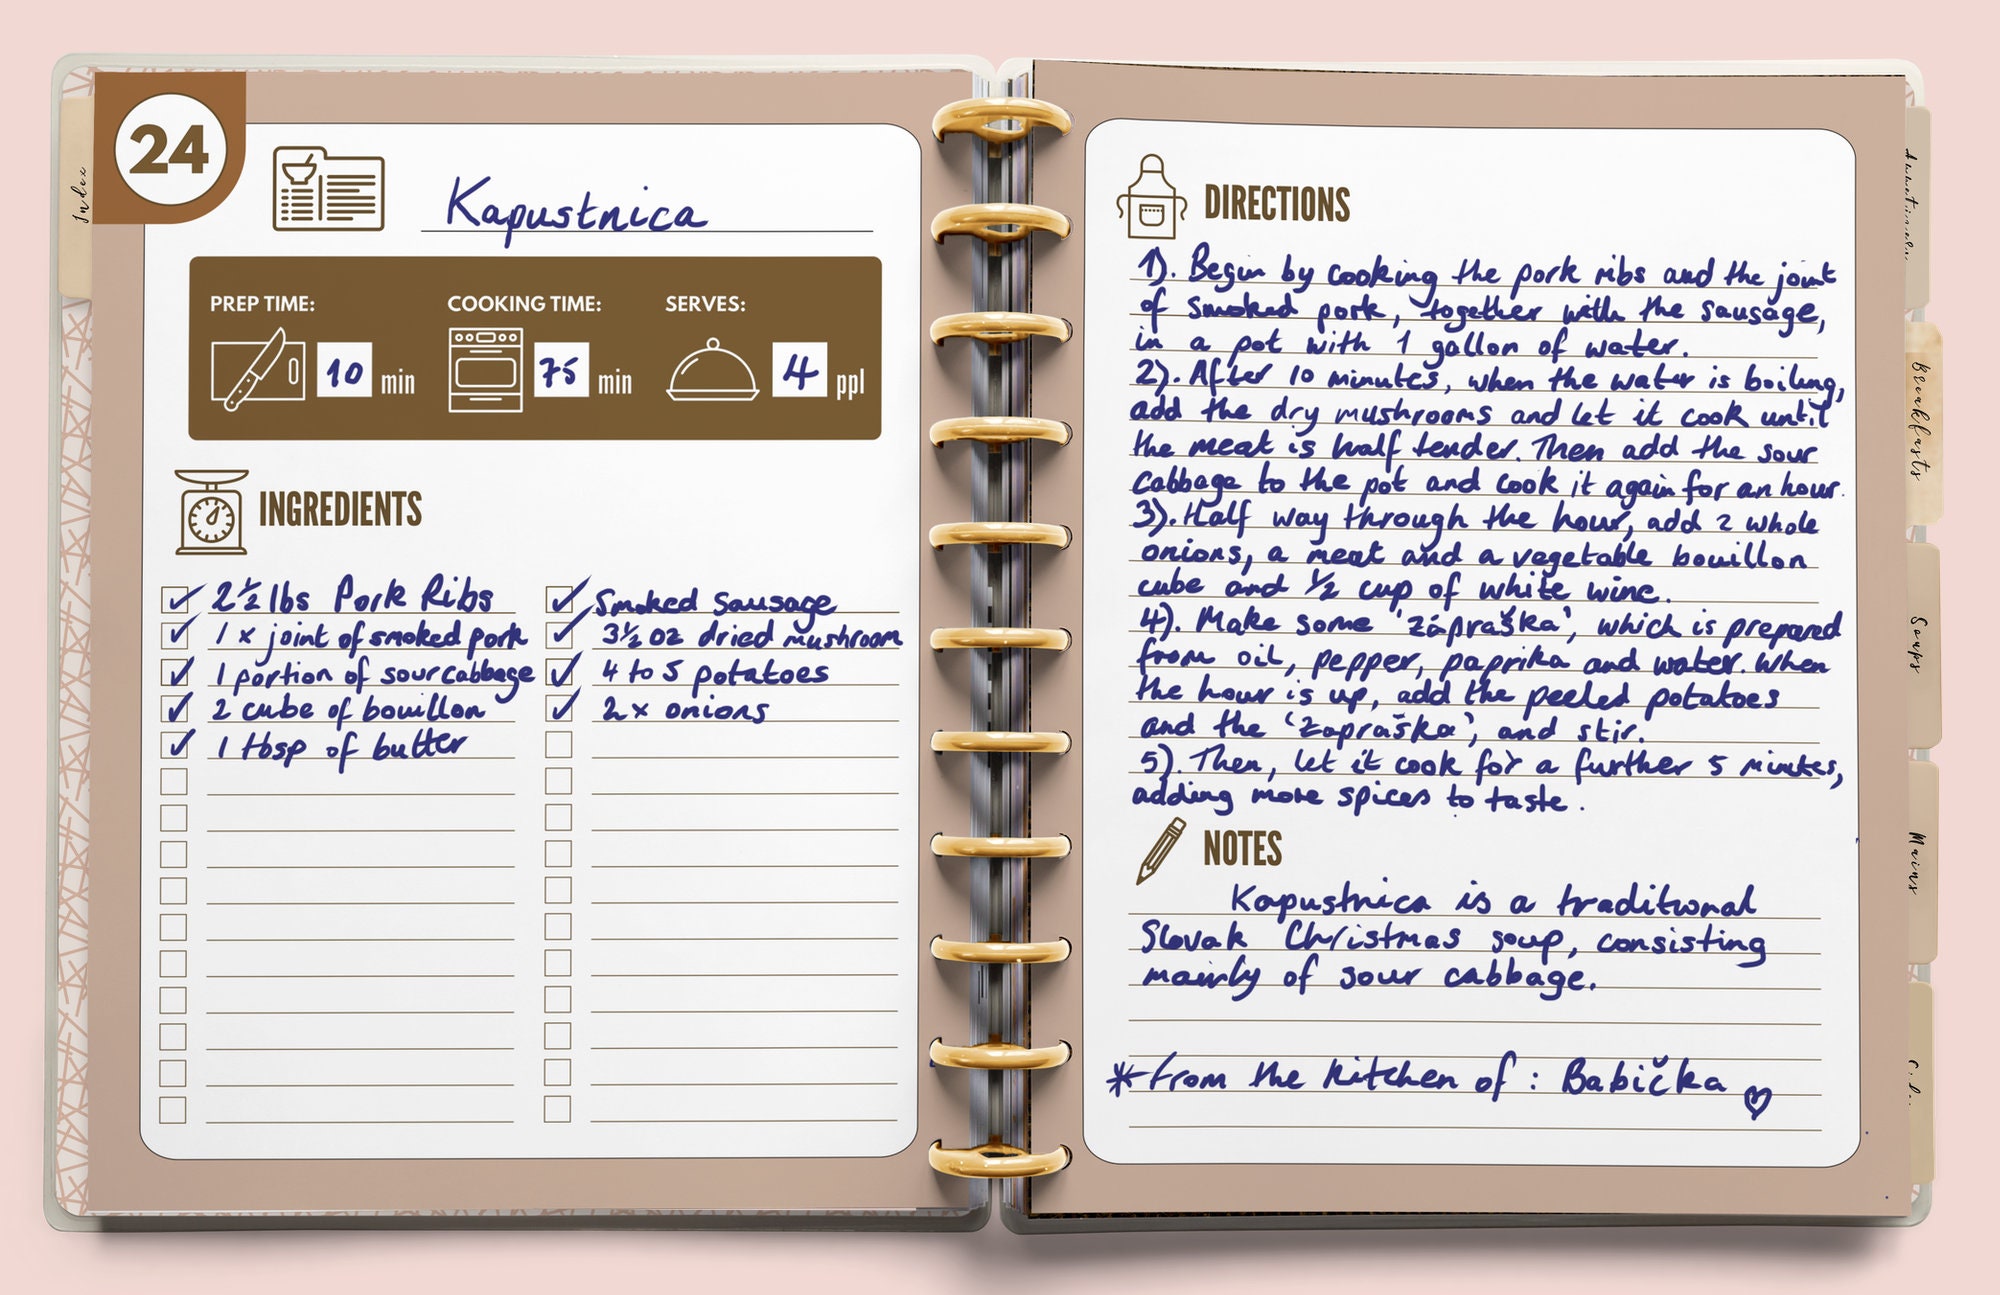 24
Index
Kapustnica
PREP TIME:
10 min
COOKING TIME:
75 min
SERVES:
4 ppl
INGREDIENTS
2½ lbs Pork Ribs
1 x joint of smoked pork
1 portion of sour cabbage
2 cube of bouillon
1 tbsp of butter
Smoked sausage
3½ oz dried mushroom
4 to 5 potatoes
2x onions
DIRECTIONS
1). Begin by cooking the pork ribs and the joint
of smoked pork, together with the sausage,
in a pot with 1 gallon of water.
2). After 10 minutes, when the water is boiling,
add the dry mushrooms and let it cook until
the meat is half tender. Then add the sour
cabbage to the pot and cook it again for an hour.
3). Half way through the hour, add 2 whole
onions, a meat and a vegetable bouillon
cube and ½ cup of white wine.
4). Make some 'zápraška', which is prepared
from oil, pepper, paprika and water. When
the hour is up, add the peeled potatoes
and the 'zapraška', and stir.
5). Then, let it cook for a further 5 minutes,
adding more spices to taste.
NOTES
Kapustnica is a traditional
Slovak Christmas soup, consisting
mainly of sour cabbage.
* From the kitchen of : Babička ♡
Breakfasts
Soups
Mains